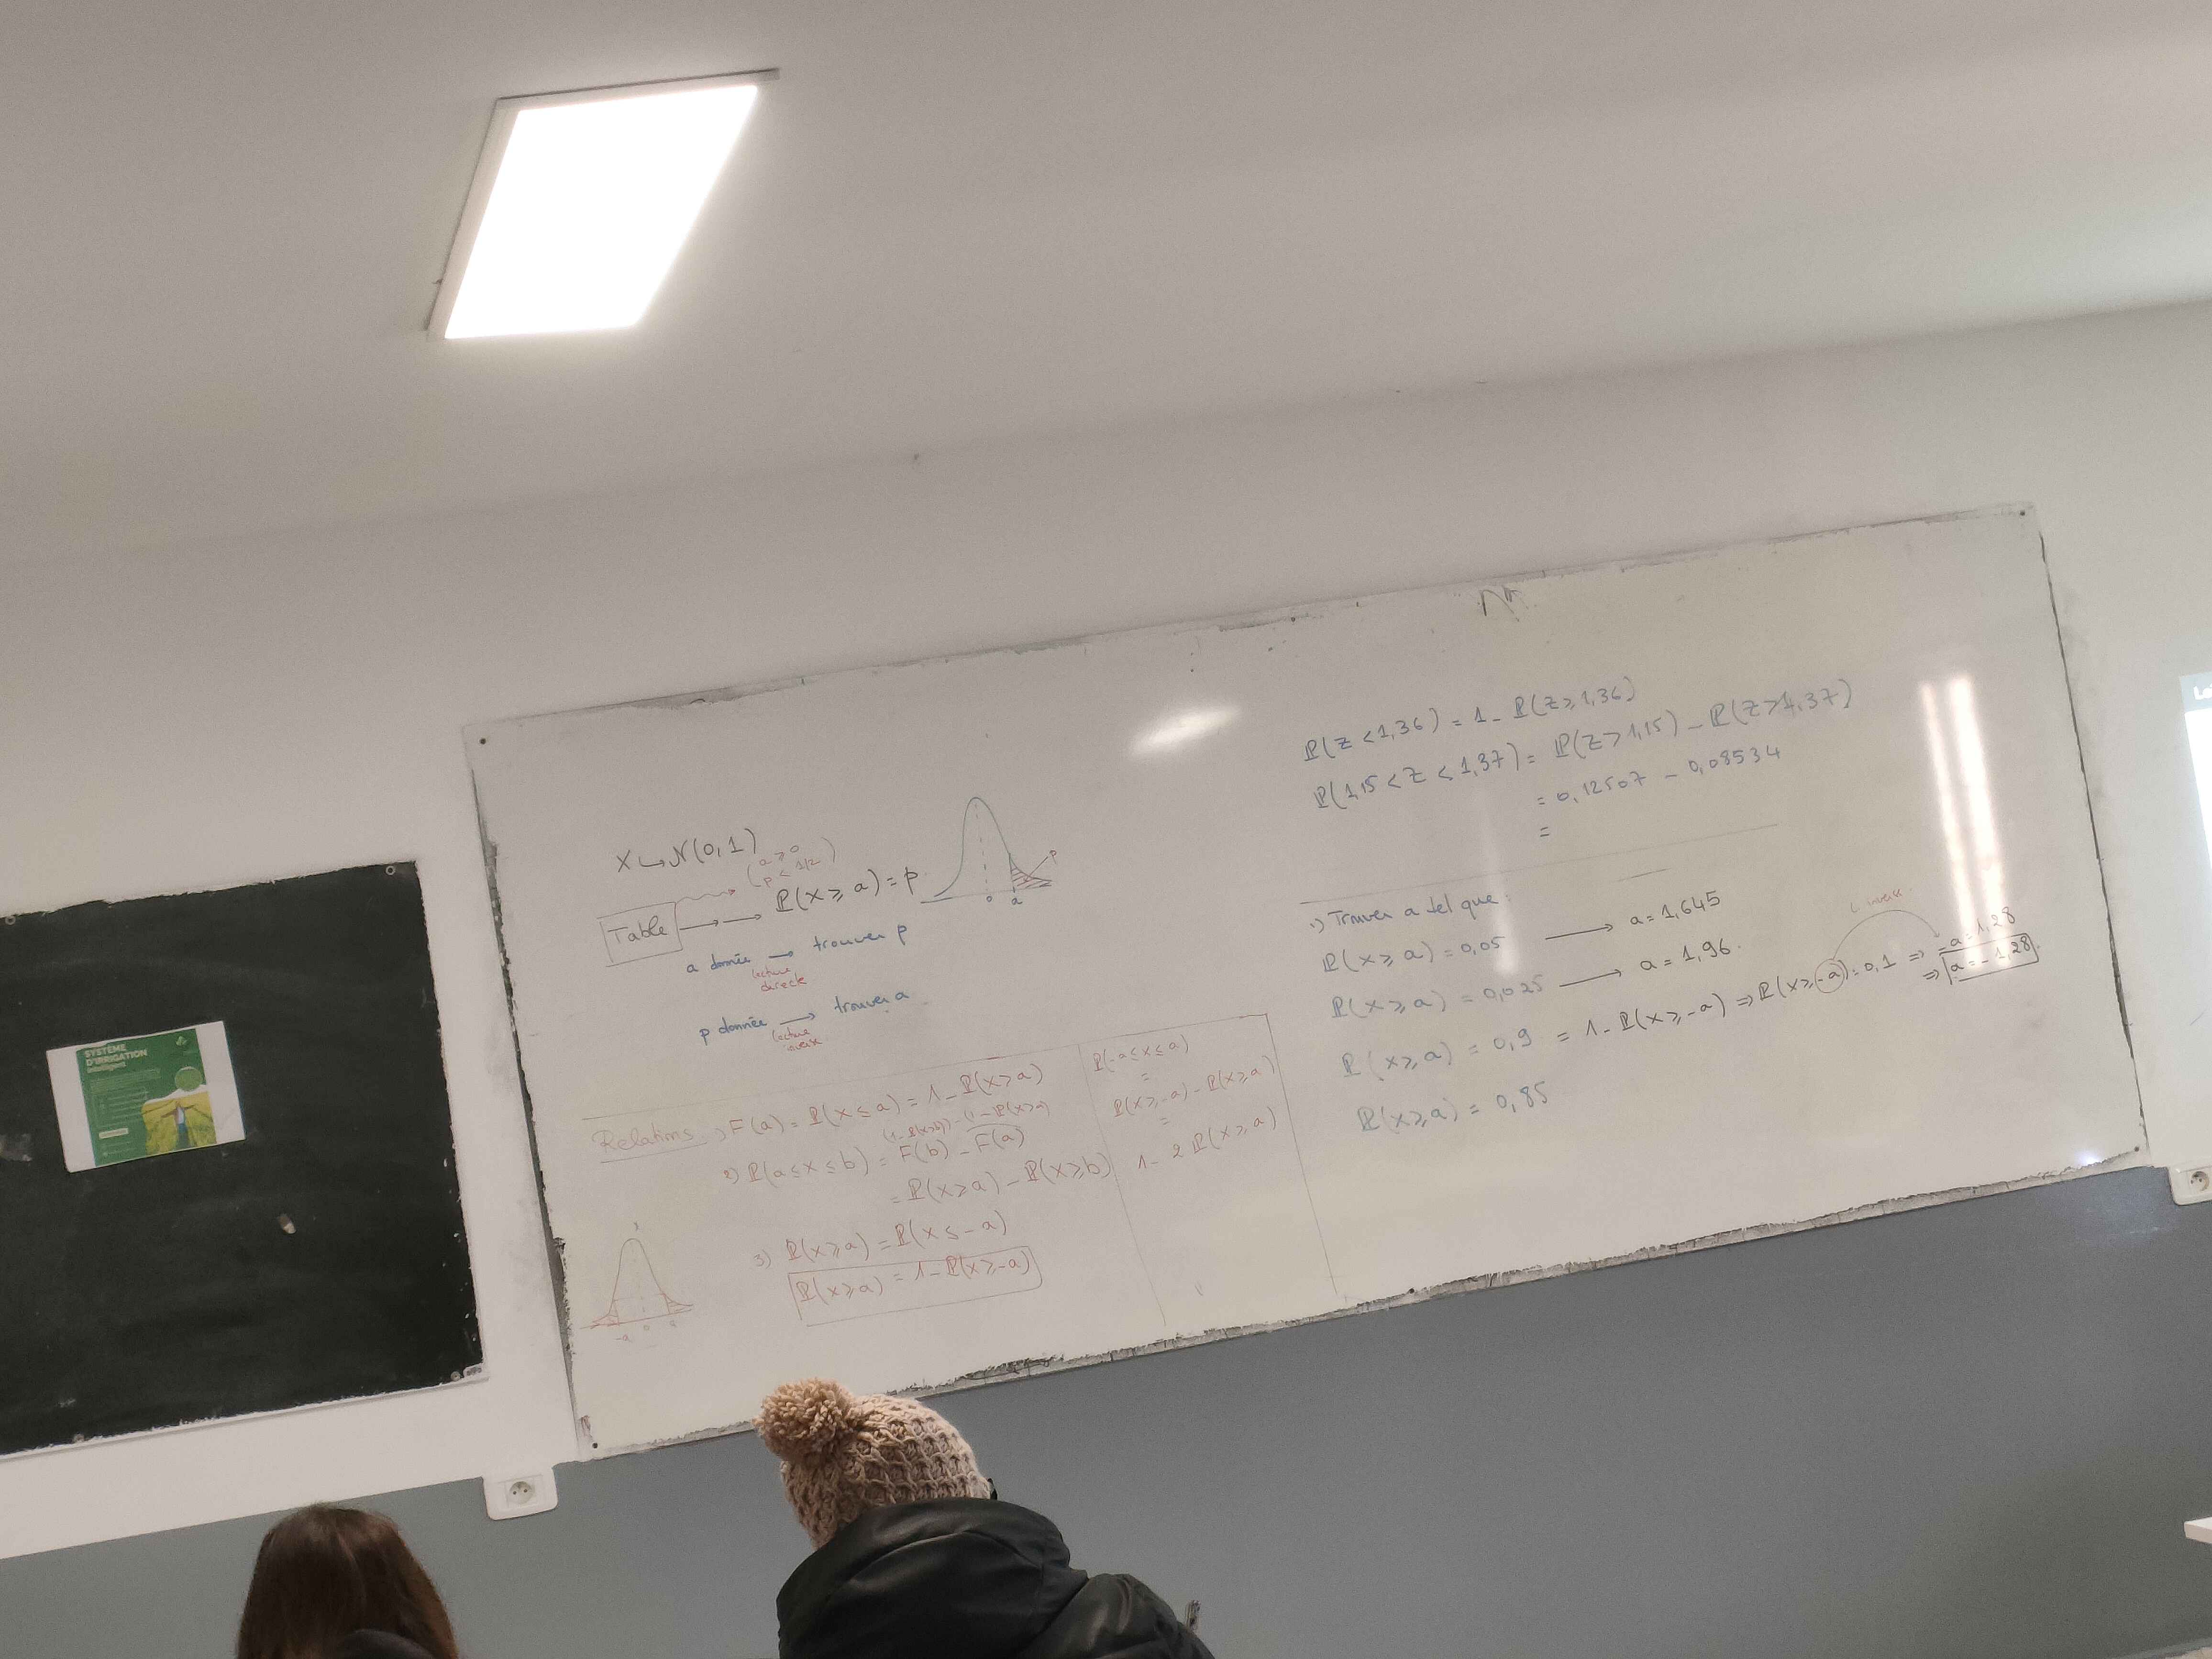 SYSTÈME
D'IRRIGATION
intelligent
X ↪ N(0,1)
(a ⩾ 0
p < 1/2)
Table → P(X ⩾ a) = p
p
0 a
a donnée → trouver p
lecture
directe
p donnée → trouver a
lecture
inverse
Relations 1) F(a) = P(X ⩽ a) = 1 - P(X ⩾ a)
(1 - P(X⩾b)) - (1 - P(X⩾a))
2) P(a ⩽ X ⩽ b) = F(b) - F(a)
= P(X ⩾ a) - P(X ⩾ b)
3) P(X ⩾ a) = P(X ⩽ -a)
P(X ⩾ a) = 1 - P(X ⩾ -a)
-a 0 a
P(-a ⩽ X ⩽ a)
=
P(X ⩾ -a) - P(X ⩾ a)
=
1 - 2 P(X ⩾ a)
P(Z < 1,36) = 1 - P(Z ⩾ 1,36)
P(1,15 < Z < 1,37) = P(Z > 1,15) - P(Z > 1,37)
= 0,12507 - 0,08534
=
1) Trouver a tel que :
P(X ⩾ a) = 0,05 → a = 1,645
P(X ⩾ a) = 0,025 → a = 1,96.
P(X ⩾ a) = 0,9 = 1 - P(X ⩾ -a) ⇒ P(X ⩾ -a) = 0,1 ⇒ -a = 1,28
L inverse
⇒ a = -1,28
P(X ⩾ a) = 0,85